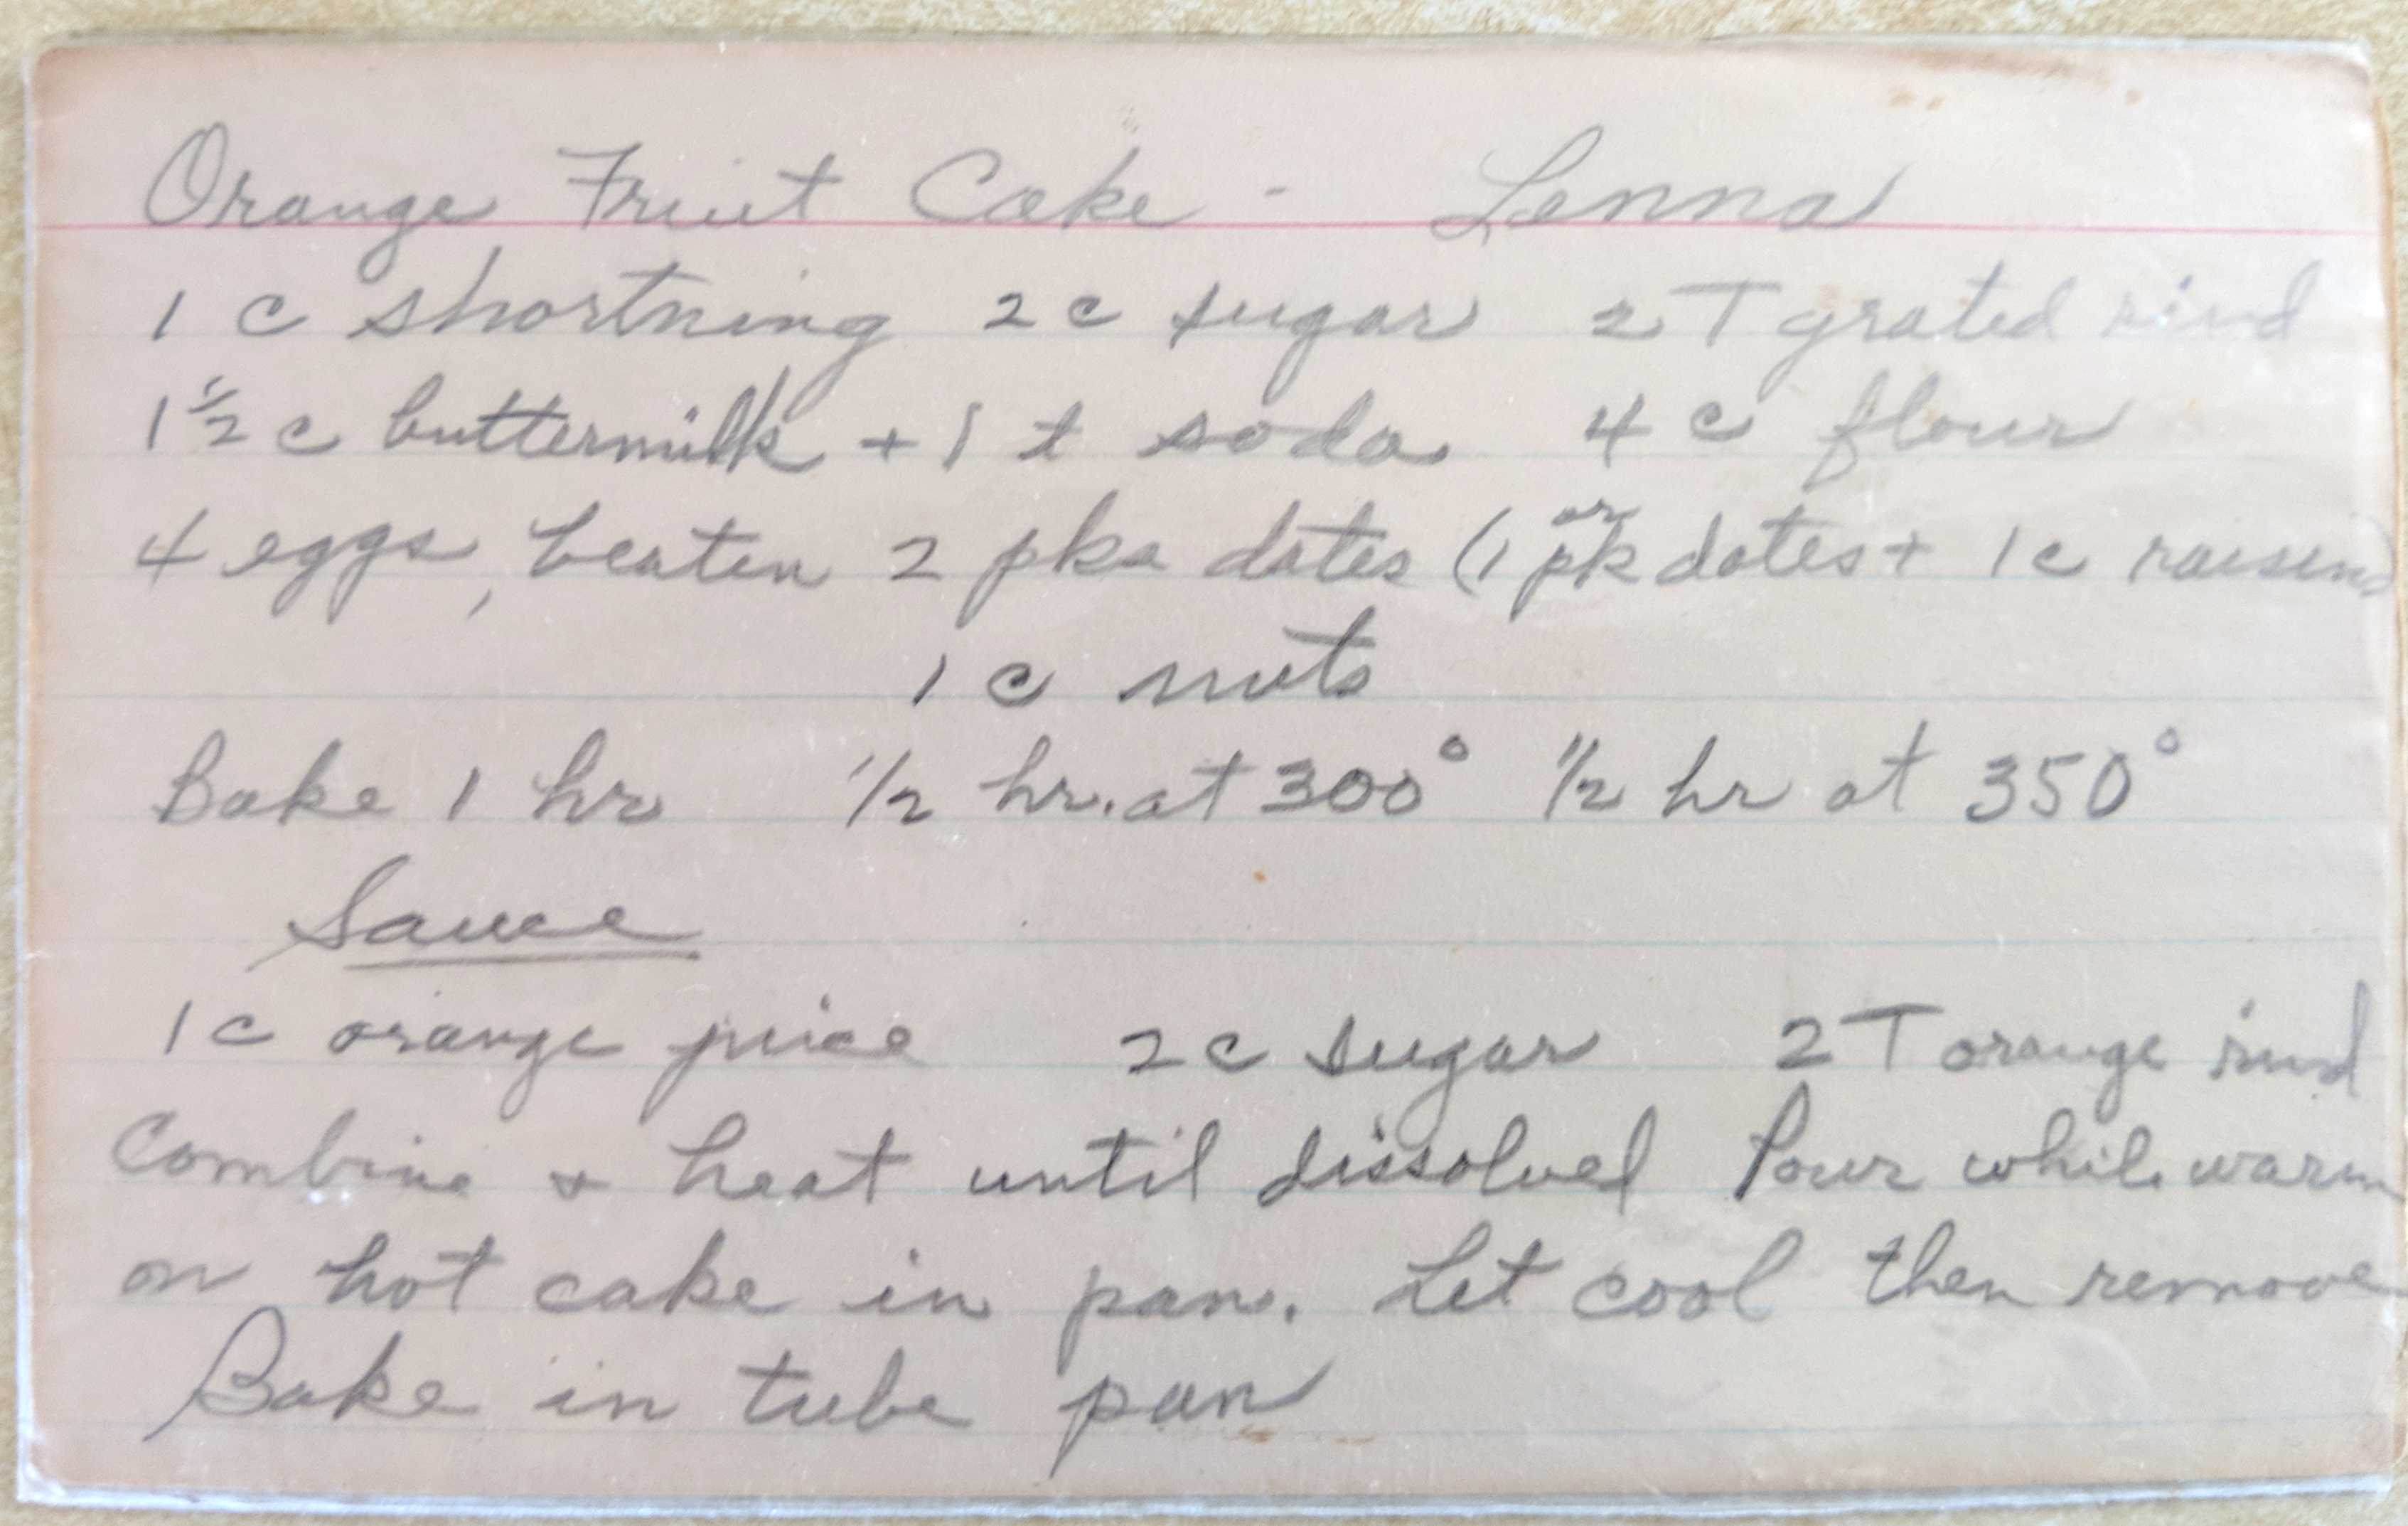 Orange Fruit Cake - Lenna
1 c shortning 2 c sugar 2 T grated rind
1 1/2 c buttermilk + 1 t soda 4 c flour
4 eggs, beaten 2 pks dates (or 1 pk dates + 1 c raisins)
1 c nuts
Bake 1 hr 1/2 hr. at 300° 1/2 hr at 350°
Sauce
1 c orange juice 2 c sugar 2 T orange rind
Combine + heat until dissolved Pour while warm
on hot cake in pan. Let cool then remove
Bake in tube pan